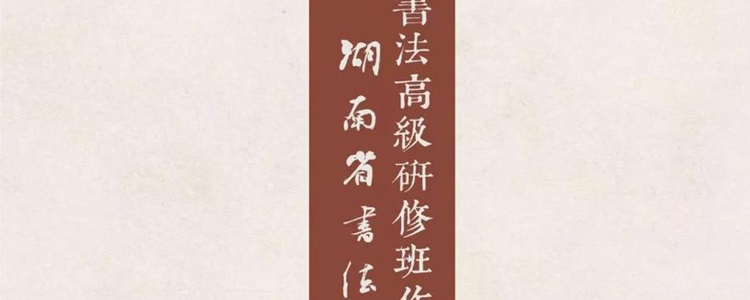 書法高級研修班作
湖南省書法